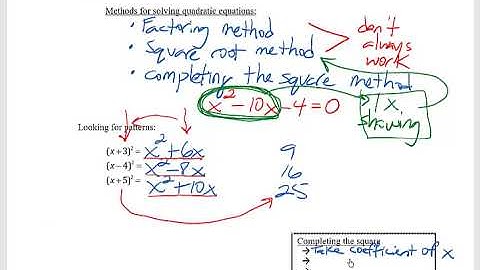 Methods for solving quadratic equations:
• Factoring method
• Square root method
• completing the square method
don't
always
work
x² - 10x - 4 = 0
1 x
showing
Looking for patterns:
(x + 3)² = x² + 6x 9
(x − 4)² = x² - 8x 16
(x + 5)² = x² + 10x 25
Completing the square
→ Take coefficient of x
→
→